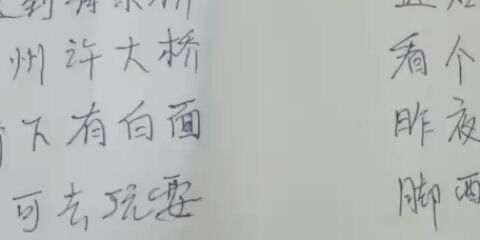 州许大桥
下有白面
可去玩耍
看个
昨夜
脚